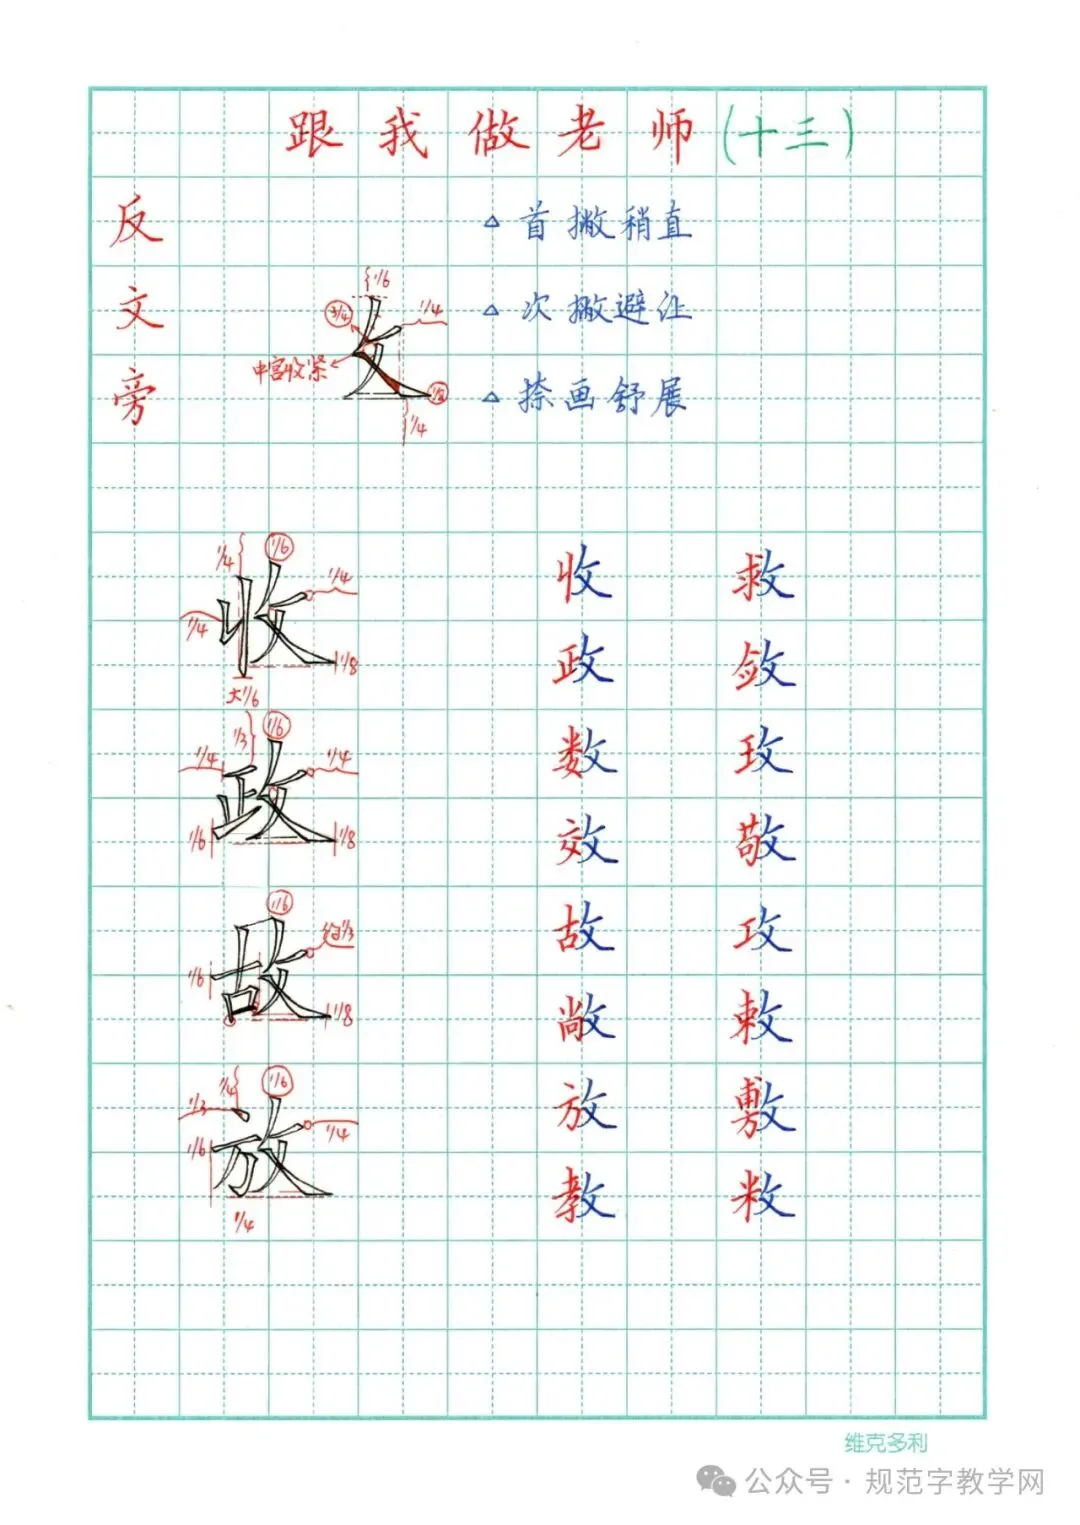 跟我做老师(十三)
反文旁
△首撇稍直
△次撇避让
△捺画舒展
1/6
3/4
1/4
中宫收紧
1/8
1/4
1/4
1/6
1/4
1/4
收
1/8
大1/6
收 救
政 敛
1/3
1/6
1/4
1/4
政
1/6
1/8
数 玫
效 敬
1/6
约1/3
1/6
故
1/8
故 攻
敞 敕
1/4
1/6
1/3
1/4
1/6
放
1/4
放 敷
教 敉
维克多利
公众号·规范字教学网